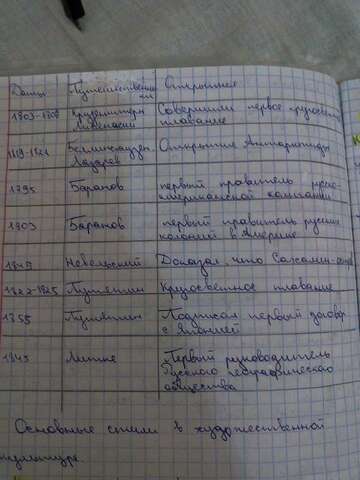 Даты Путешественники Открытия
1803-1806 Крузенштерн Лисянский Совершили первое кругосв. плавание
1819-1821 Беллинсгаузен Лазарев Открытие Антарктиды
1795 Баранов первый правитель русско-американской компании
1803 Баранов первый правитель русских колоний в Америке
Невельский Доказал, что Сахалин-остров
1822-1825 Путятин Кругосветное плавание
1855 Путятин Подписал первый договор с Японией
1845 Литке Первый руководитель Русского географического общества
Основные стили в художественной
культуре.